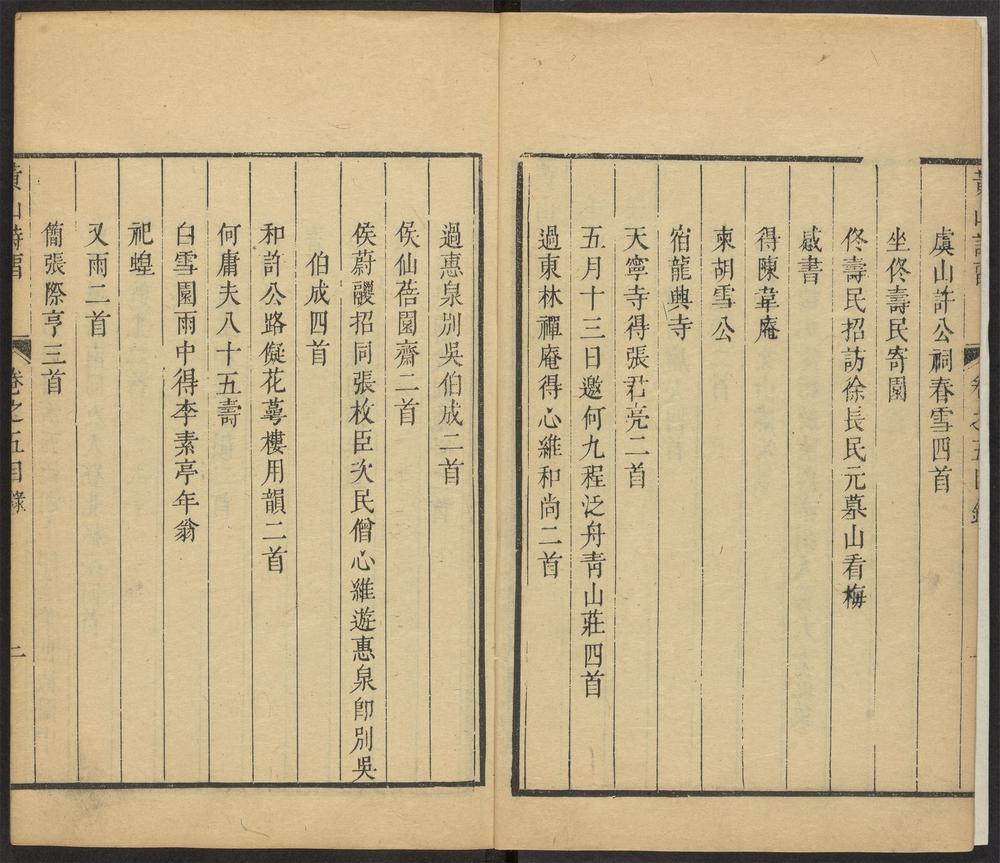 虞山許公祠春雪四首
坐佟壽民寄園
佟壽民招訪徐長民元墓山看梅
感書
得陳葦庵
柬胡雪公
宿龍興寺
天寧寺得張君亮二首
五月十三日邀何九程泛舟青山莊四首
過東林禪庵得心維和尚二首
過惠泉別吳伯成二首
侯仙蓓園齋二首
侯蔚毅招同張枚臣次民僧心維遊惠泉卽別吳
伯成四首
和許公路儗花萼樓用韻二首
何庸夫八十五壽
白雪園雨中得李素亭年翁
祀蝗
又雨二首
簡張際亨三首
黃山詩畱 卷之五目錄 二